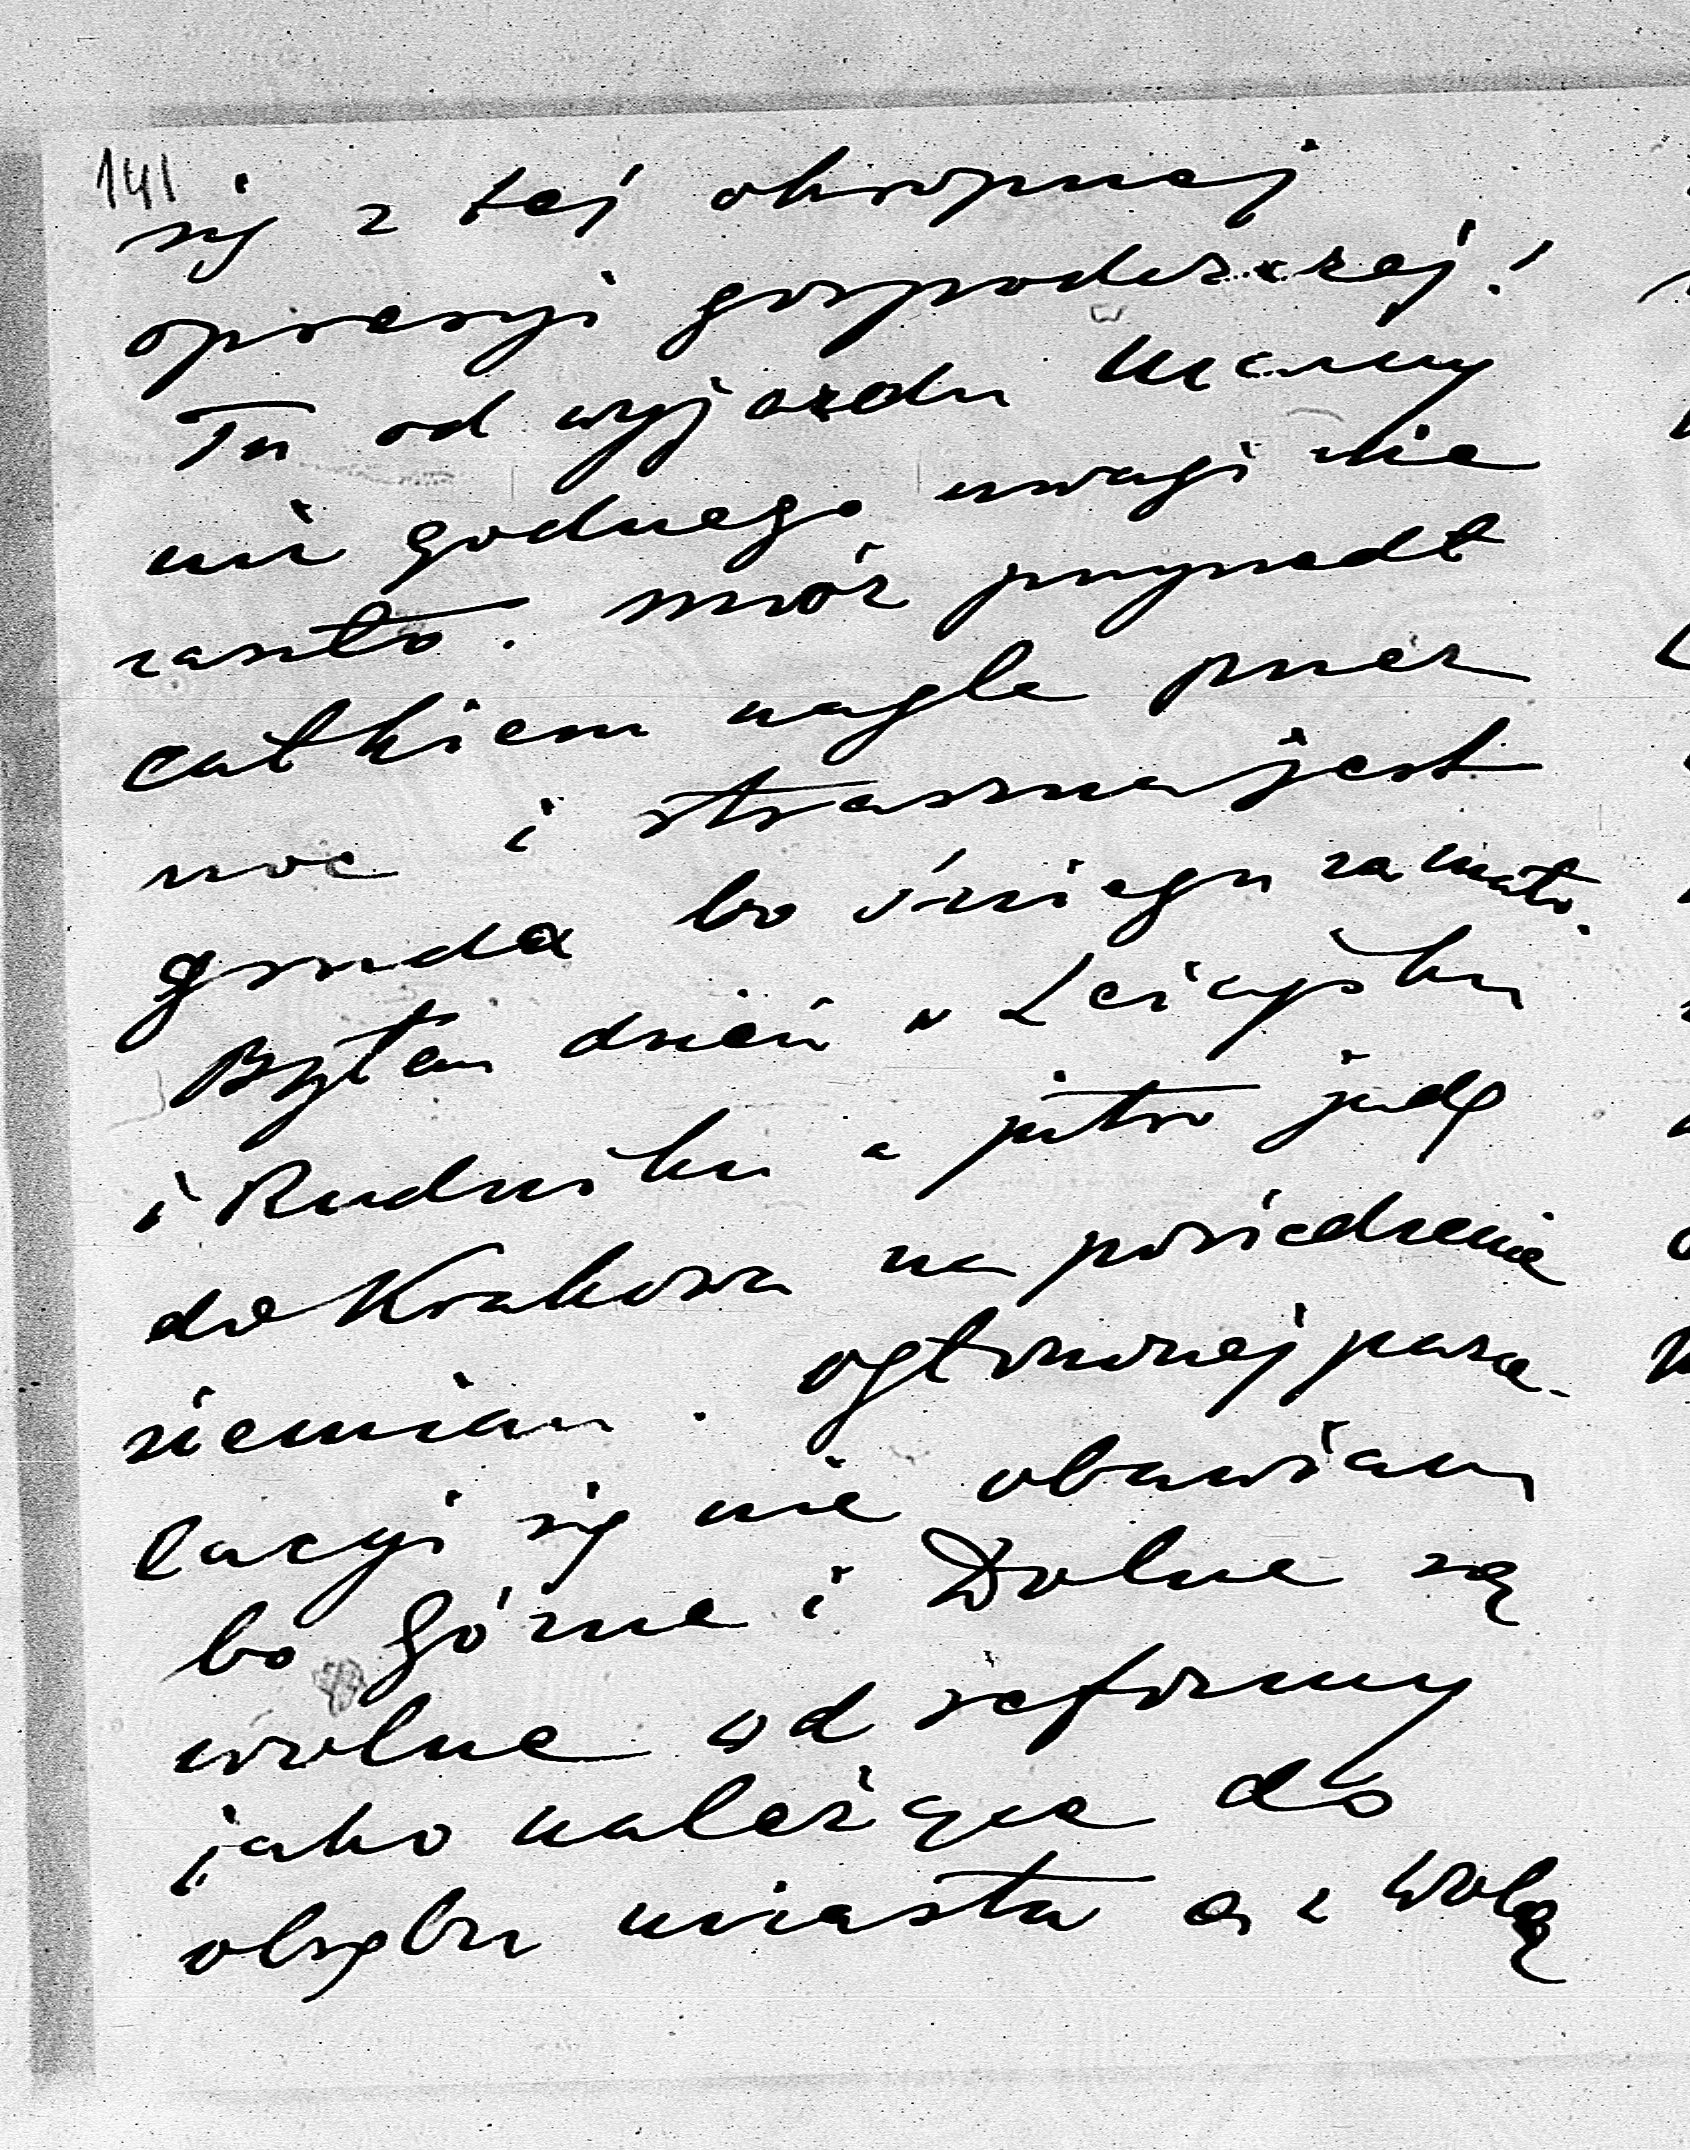 141
się z tej okropnej
opresyi gospodarczej!
Tu od wyjazdu Mamy
nic godnego uwagi nie
zaszło. Mróz przyszedł
całkiem nagle przez
noc i straszna jest
gruda bo śniegu za mało.
Byłem dzień w Leżajsku
i Rudniku a jutro jadę
do Krakowa na posiedzenie
ziemian. Ogłoszonej parce-
lacyi się nie obawiam
bo Górne i Dolne są
wolne od reformy
jako należące do
obrębu miasta a z Wolą